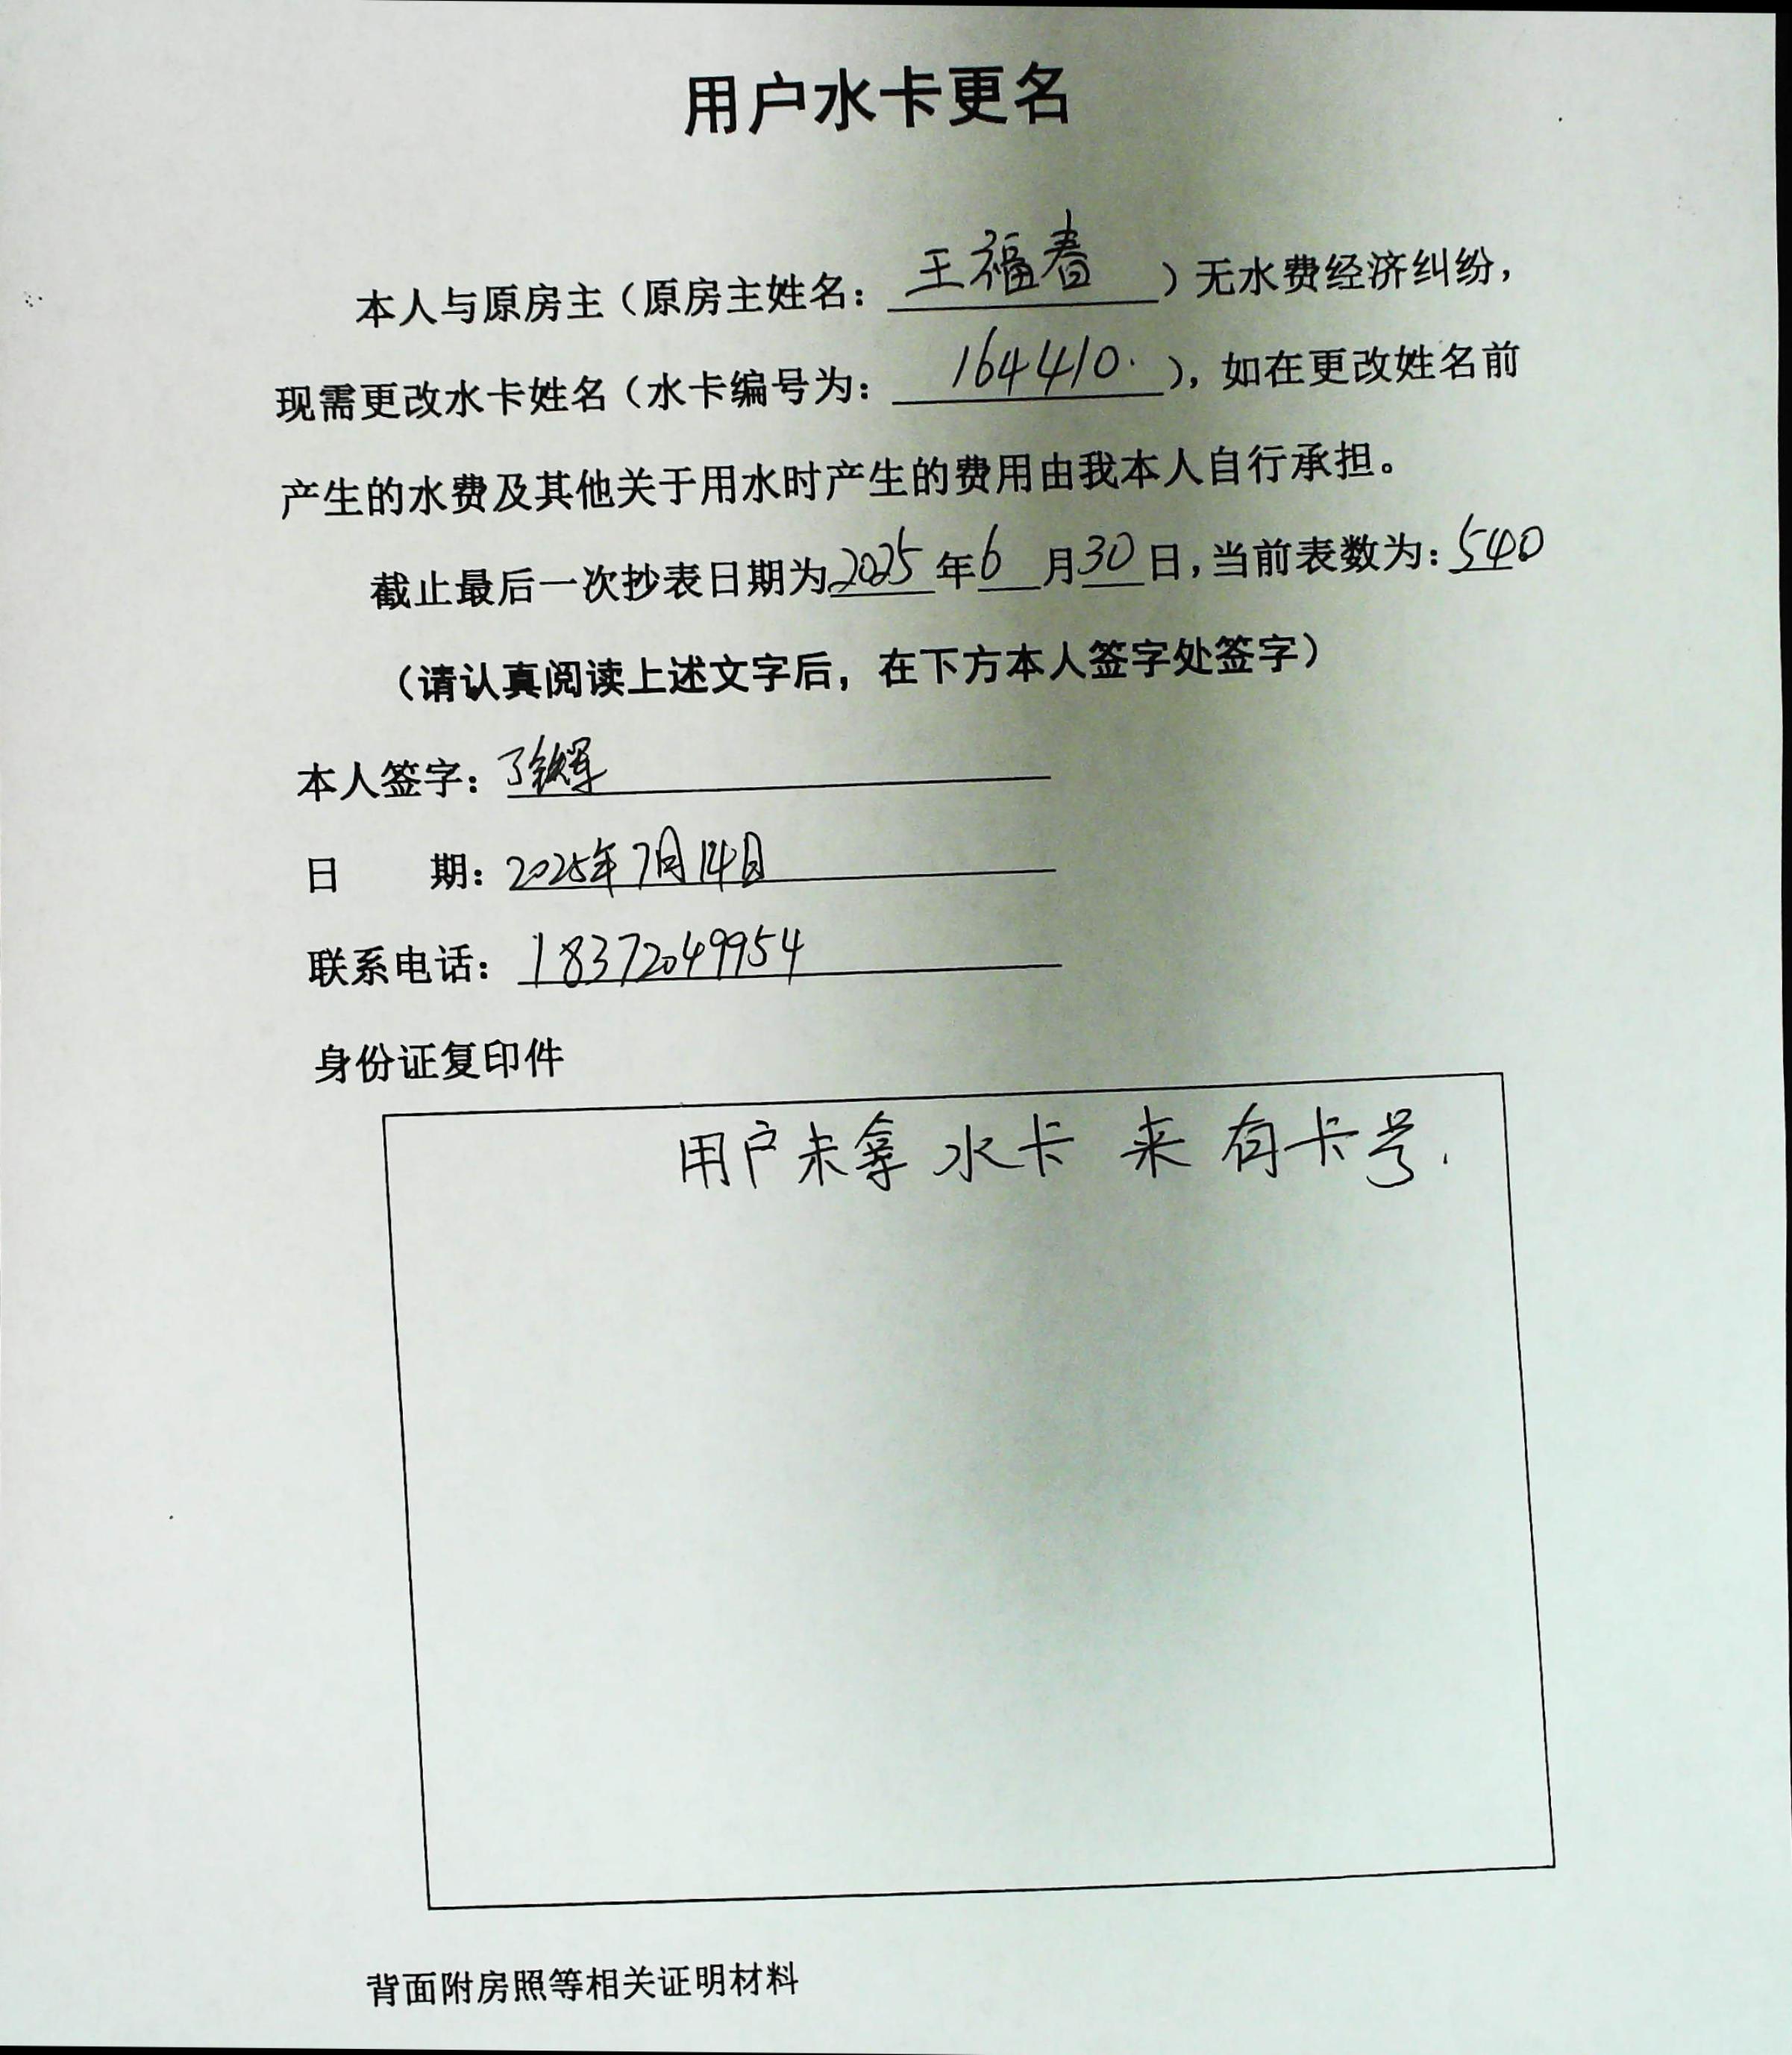 用户水卡更名
本人与原房主（原房主姓名：王福春）无水费经济纠纷，
现需更改水卡姓名（水卡编号为：164410.），如在更改姓名前
产生的水费及其他关于用水时产生的费用由我本人自行承担。
截止最后一次抄表日期为2025年6月30日，当前表数为：540
（请认真阅读上述文字后，在下方本人签字处签字）
本人签字：丁铁军
日　　期：2025年7月14日
联系电话：18372049954
身份证复印件
用户未拿水卡 来 有卡号.
背面附房照等相关证明材料